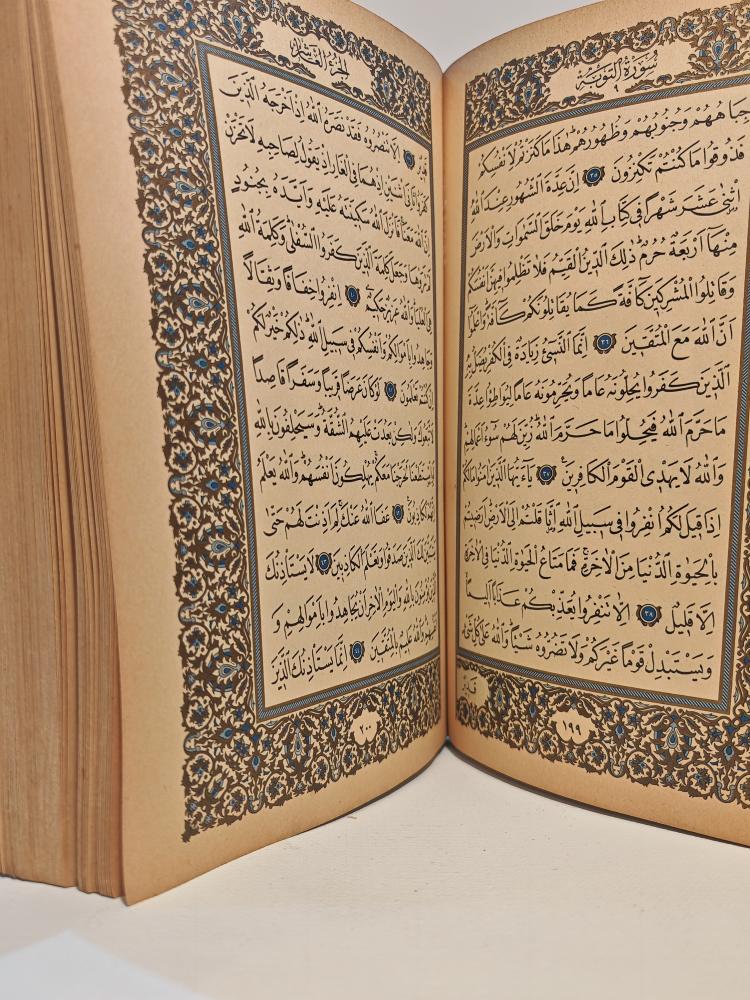 سُورَةُ التَّوْبَةِ
جِبَاهُهُمْ وَجُنُوبُهُمْ وَظُهُورُهُمْ هٰذَا مَاكَنَزْتُمْ لِاَنْفُسِكُمْ
فَذُوقُوا مَاكُنْتُمْ تَكْنِزُونَ ٣٥ اِنَّ عِدَّةَ الشُّهُورِ عِنْدَ اللّٰهِ
اثْنٰى عَشَرَ شَهْرًا فِى كِتَابِ اللّٰهِ يَوْمَ خَلَقَ السَّمٰوَاتِ وَالْاَرْضَ
مِنْهَا اَرْبَعَةٌ حُرُمٌ ذٰلِكَ الدِّينُ الْقَيِّمُ فَلَا تَظْلِمُوا فِيهِنَّ اَنْفُسَكُمْ
وَقَاتِلُوا الْمُشْرِكِينَ كَافَّةً كَمَا يُقَاتِلُونَكُمْ كَافَّةً وَاعْلَمُوا
اَنَّ اللّٰهَ مَعَ الْمُتَّقِينَ ٣٦ اِنَّمَا النَّسِىءُ زِيَادَةٌ فِى الْكُفْرِ يُضَلُّ بِهِ
الَّذِينَ كَفَرُوا يُحِلُّونَهُ عَامًا وَيُحَرِّمُونَهُ عَامًا لِيُوَاطِؤُا عِدَّةَ
مَا حَرَّمَ اللّٰهُ فَيُحِلُّوا مَا حَرَّمَ اللّٰهُ زُيِّنَ لَهُمْ سُوءُ اَعْمَالِهِمْ
وَاللّٰهُ لَا يَهْدِى الْقَوْمَ الْكَافِرِينَ ٣٧ يَاءَيُّهَا الَّذِينَ اٰمَنُوا مَا لَكُمْ
اِذَا قِيلَ لَكُمُ انْفِرُوا فِى سَبِيلِ اللّٰهِ اثَّاقَلْتُمْ اِلَى الْاَرْضِ اَرَضِيتُمْ
بِالْحَيٰوةِ الدُّنْيَا مِنَ الْاٰخِرَةِ فَمَا مَتَاعُ الْحَيٰوةِ الدُّنْيَا فِى الْاٰخِرَةِ
اِلَّا قَلِيلٌ ٣٨ اِلَّا تَنْفِرُوا يُعَذِّبْكُمْ عَذَابًا اَلِيمًا
وَيَسْتَبْدِلْ قَوْمًا غَيْرَكُمْ وَلَا تَضُرُّوهُ شَيْئًا وَاللّٰهُ عَلٰى كُلِّ شَىْءٍ
قَدِيرٌ
١٩٩
الجزء العاشر
قَدِيرٌ ٣٩ اِلَّا تَنْصُرُوهُ فَقَدْ نَصَرَهُ اللّٰهُ اِذْ اَخْرَجَهُ الَّذِينَ
كَفَرُوا ثَانِىَ اثْنَيْنِ اِذْ هُمَا فِى الْغَارِ اِذْ يَقُولُ لِصَاحِبِهِ لَا تَحْزَنْ
اِنَّ اللّٰهَ مَعَنَا فَاَنْزَلَ اللّٰهُ سَكِينَتَهُ عَلَيْهِ وَاَيَّدَهُ بِجُنُودٍ
لَمْ تَرَوْهَا وَجَعَلَ كَلِمَةَ الَّذِينَ كَفَرُوا السُّفْلٰى وَكَلِمَةُ اللّٰهِ
هِىَ الْعُلْيَا وَاللّٰهُ عَزِيزٌ حَكِيمٌ ٤٠ اِنْفِرُوا خِفَافًا وَثِقَالًا
وَجَاهِدُوا بِاَمْوَالِكُمْ وَاَنْفُسِكُمْ فِى سَبِيلِ اللّٰهِ ذٰلِكُمْ خَيْرٌ لَكُمْ
اِنْ كُنْتُمْ تَعْلَمُونَ ٤١ لَوْ كَانَ عَرَضًا قَرِيبًا وَسَفَرًا قَاصِدًا
لَاتَّبَعُوكَ وَلٰكِنْ بَعُدَتْ عَلَيْهِمُ الشُّقَّةُ وَسَيَحْلِفُونَ بِاللّٰهِ
لَوِ اسْتَطَعْنَا لَخَرَجْنَا مَعَكُمْ يُهْلِكُونَ اَنْفُسَهُمْ وَاللّٰهُ يَعْلَمُ
اِنَّهُمْ لَكَاذِبُونَ ٤٢ عَفَا اللّٰهُ عَنْكَ لِمَ اَذِنْتَ لَهُمْ حَتّٰى
يَتَبَيَّنَ لَكَ الَّذِينَ صَدَقُوا وَتَعْلَمَ الْكَاذِبِينَ ٤٣ لَا يَسْتَأْذِنُكَ
الَّذِينَ يُؤْمِنُونَ بِاللّٰهِ وَالْيَوْمِ الْاٰخِرِ اَنْ يُجَاهِدُوا بِاَمْوَالِهِمْ وَ
اَنْفُسِهِمْ وَاللّٰهُ عَلِيمٌ بِالْمُتَّقِينَ ٤٤ اِنَّمَا يَسْتَأْذِنُكَ الَّذِينَ
٢٠٠